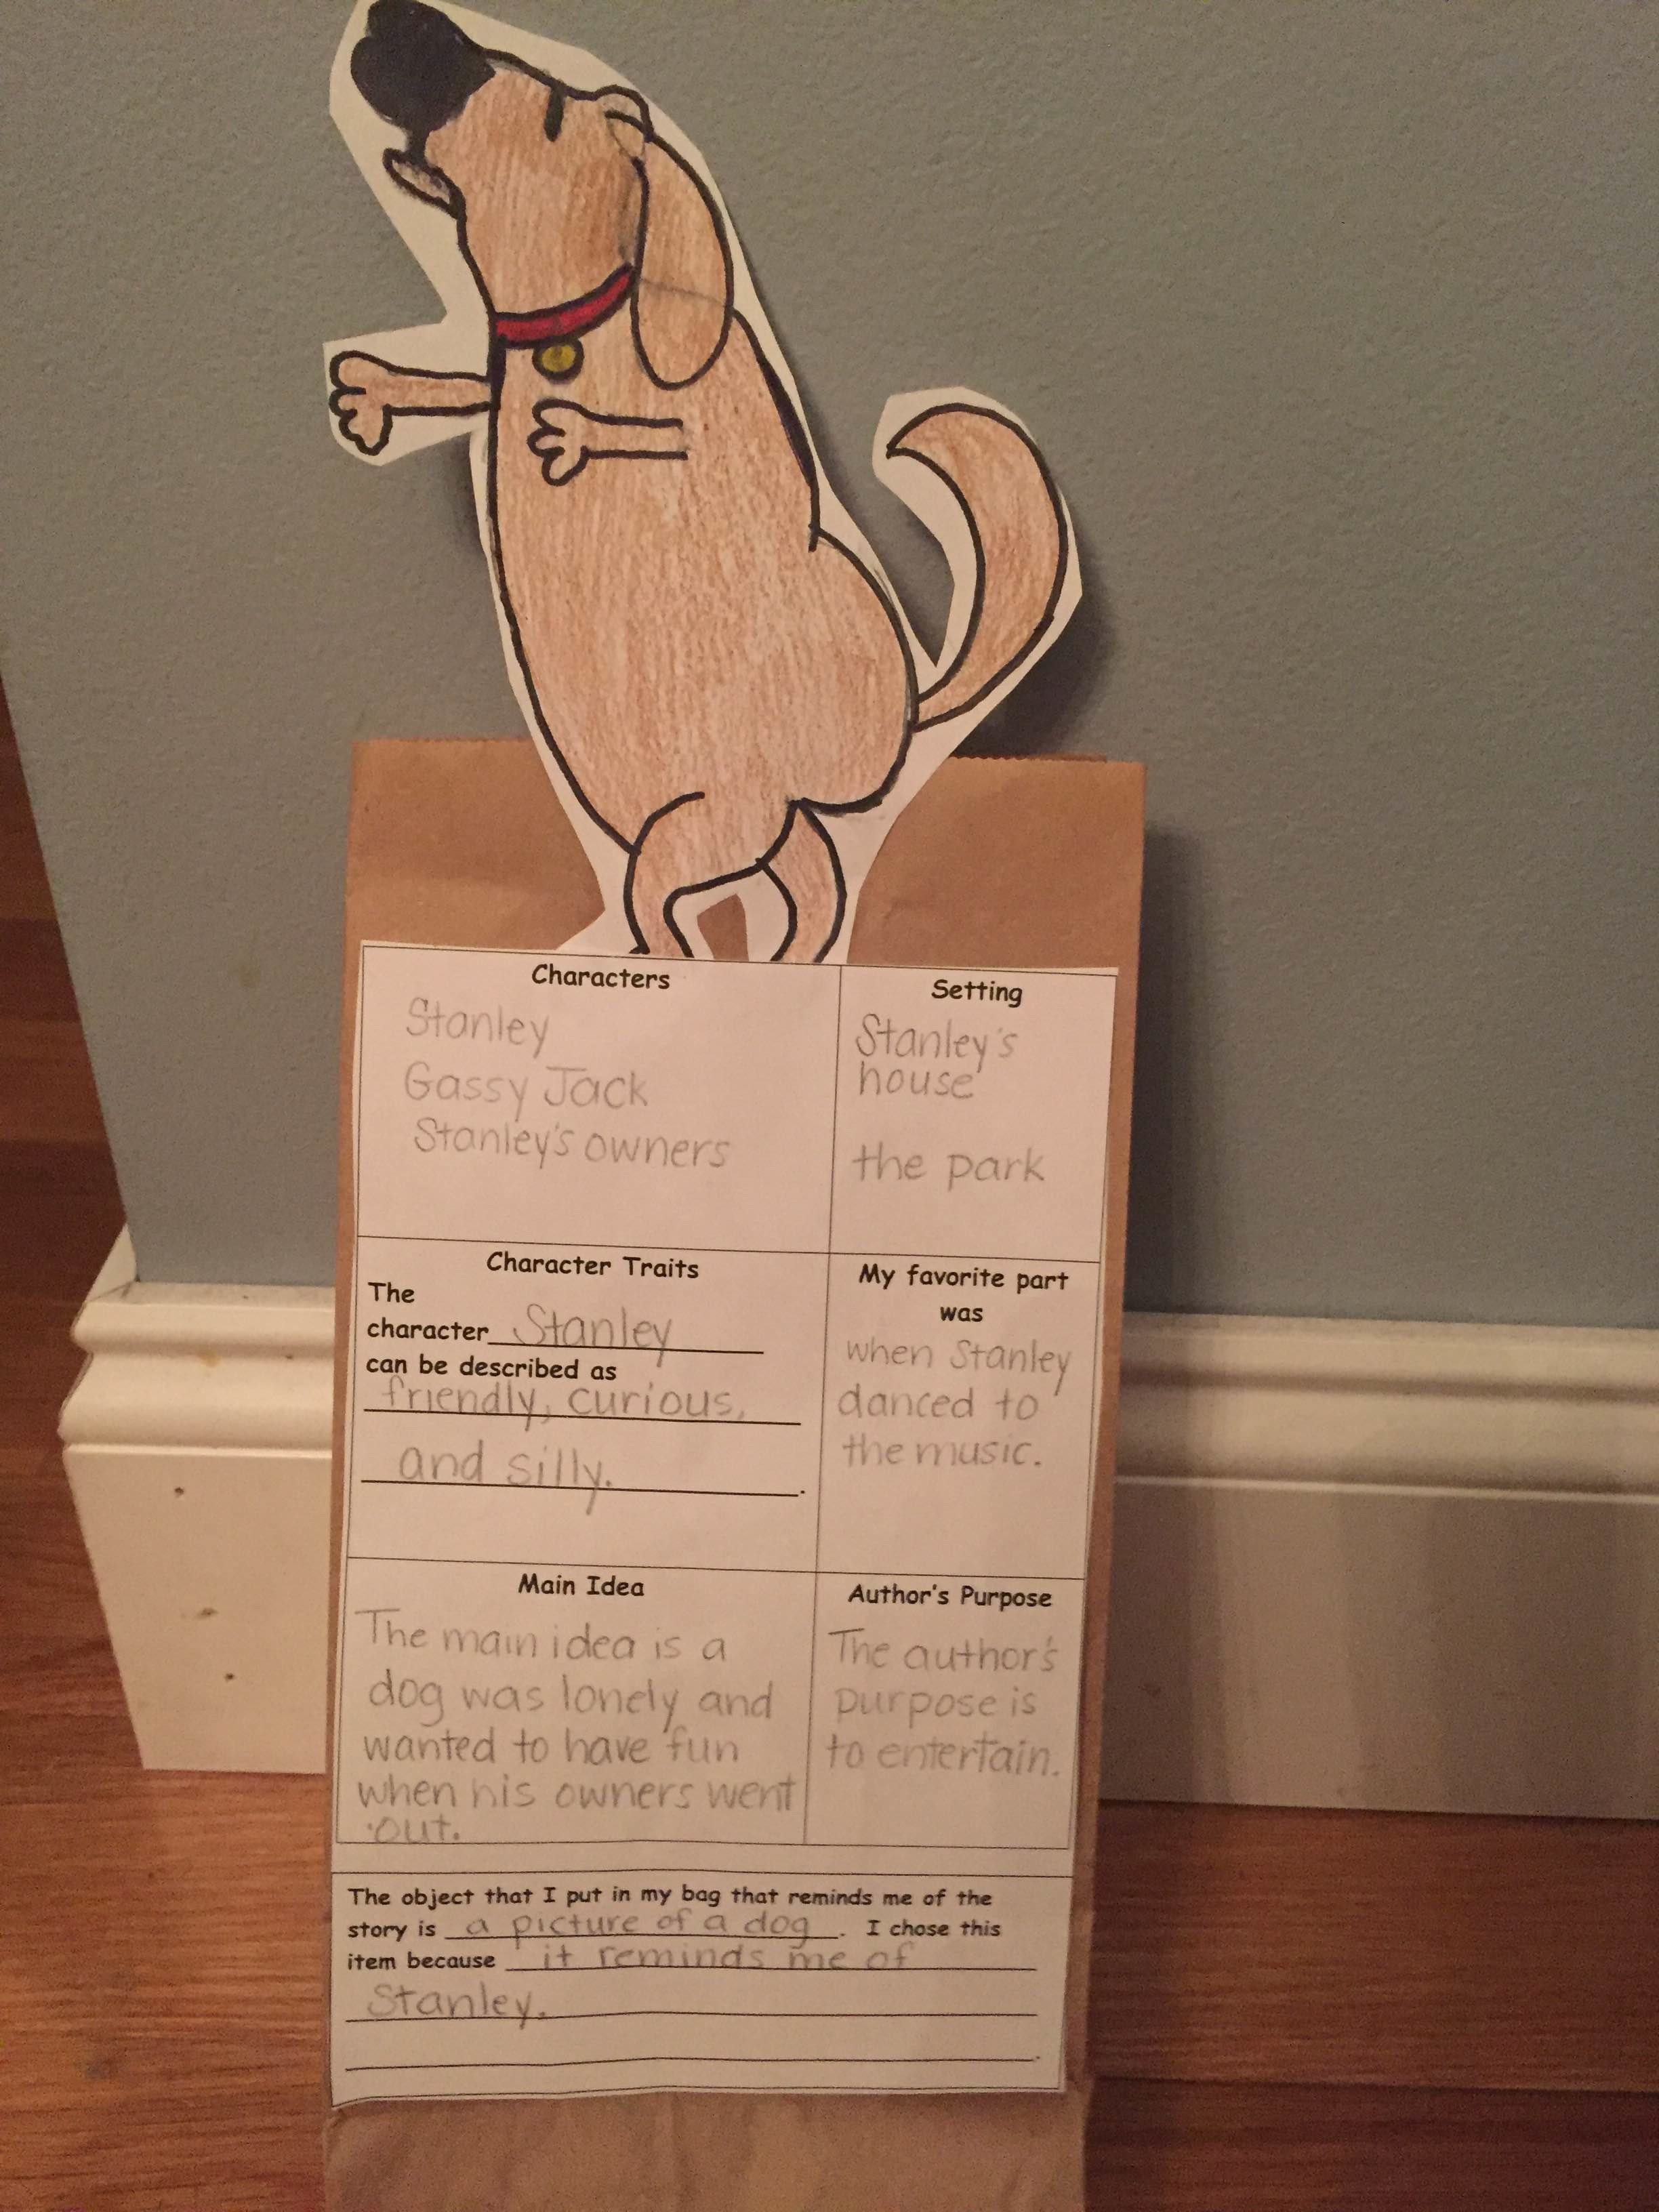 Characters
Stanley
Gassy Jack
Stanley's owners
Setting
Stanley's
house
the park
Character Traits
The
character Stanley
can be described as
friendly, curious,
and silly.
.
My favorite part
was
when Stanley
danced to
the music.
Main Idea
The main idea is a
dog was lonely and
wanted to have fun
when his owners went
out.
Author's Purpose
The author's
purpose is
to entertain.
The object that I put in my bag that reminds me of the
story is a picture of a dog. I chose this
item because it reminds me of
Stanley.
.